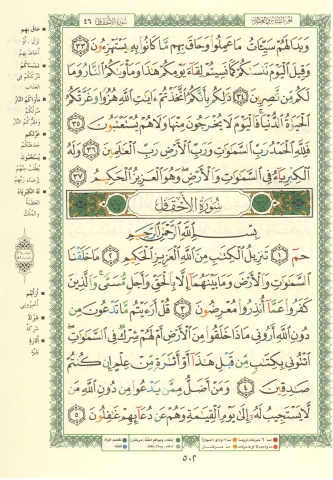 الجزء السادس والعشرون
سورة الأحقاف ٤٦
وَبَدَا لَهُمْ سَيِّئَاتُ مَا عَمِلُوا وَحَاقَ بِهِم مَّا كَانُوا بِهِ يَسْتَهْزِءُونَ ٣٣
وَقِيلَ الْيَوْمَ نَنسَىٰكُمْ كَمَا نَسِيتُمْ لِقَاءَ يَوْمِكُمْ هَٰذَا وَمَأْوَىٰكُمُ النَّارُ وَمَا
لَكُم مِّن نَّٰصِرِينَ ٣٤ ذَٰلِكُم بِأَنَّكُمُ اتَّخَذْتُمْ ءَايَٰتِ اللَّهِ هُزُوًا وَغَرَّتْكُمُ
الْحَيَوٰةُ الدُّنْيَا فَالْيَوْمَ لَا يُخْرَجُونَ مِنْهَا وَلَا هُمْ يُسْتَعْتَبُونَ ٣٥
فَلِلَّهِ الْحَمْدُ رَبِّ السَّمَٰوَٰتِ وَرَبِّ الْأَرْضِ رَبِّ الْعَٰلَمِينَ ٣٦ وَلَهُ
الْكِبْرِيَاءُ فِي السَّمَٰوَٰتِ وَالْأَرْضِ وَهُوَ الْعَزِيزُ الْحَكِيمُ ٣٧
سُورَةُ الْأَحْقَافِ
بِسْمِ اللَّهِ الرَّحْمَٰنِ الرَّحِيمِ
حم ١ تَنزِيلُ الْكِتَٰبِ مِنَ اللَّهِ الْعَزِيزِ الْحَكِيمِ ٢ مَا خَلَقْنَا
السَّمَٰوَٰتِ وَالْأَرْضَ وَمَا بَيْنَهُمَا إِلَّا بِالْحَقِّ وَأَجَلٍ مُّسَمًّى وَالَّذِينَ
كَفَرُوا عَمَّا أُنذِرُوا مُعْرِضُونَ ٣ قُلْ أَرَءَيْتُم مَّا تَدْعُونَ مِن
دُونِ اللَّهِ أَرُونِي مَاذَا خَلَقُوا مِنَ الْأَرْضِ أَمْ لَهُمْ شِرْكٌ فِي السَّمَٰوَٰتِ
ائْتُونِي بِكِتَٰبٍ مِّن قَبْلِ هَٰذَا أَوْ أَثَٰرَةٍ مِّنْ عِلْمٍ إِن كُنتُمْ
صَٰدِقِينَ ٤ وَمَنْ أَضَلُّ مِمَّن يَدْعُوا مِن دُونِ اللَّهِ مَن
لَّا يَسْتَجِيبُ لَهُ إِلَىٰ يَوْمِ الْقِيَٰمَةِ وَهُمْ عَن دُعَائِهِمْ غَٰفِلُونَ ٥
٥٠٢